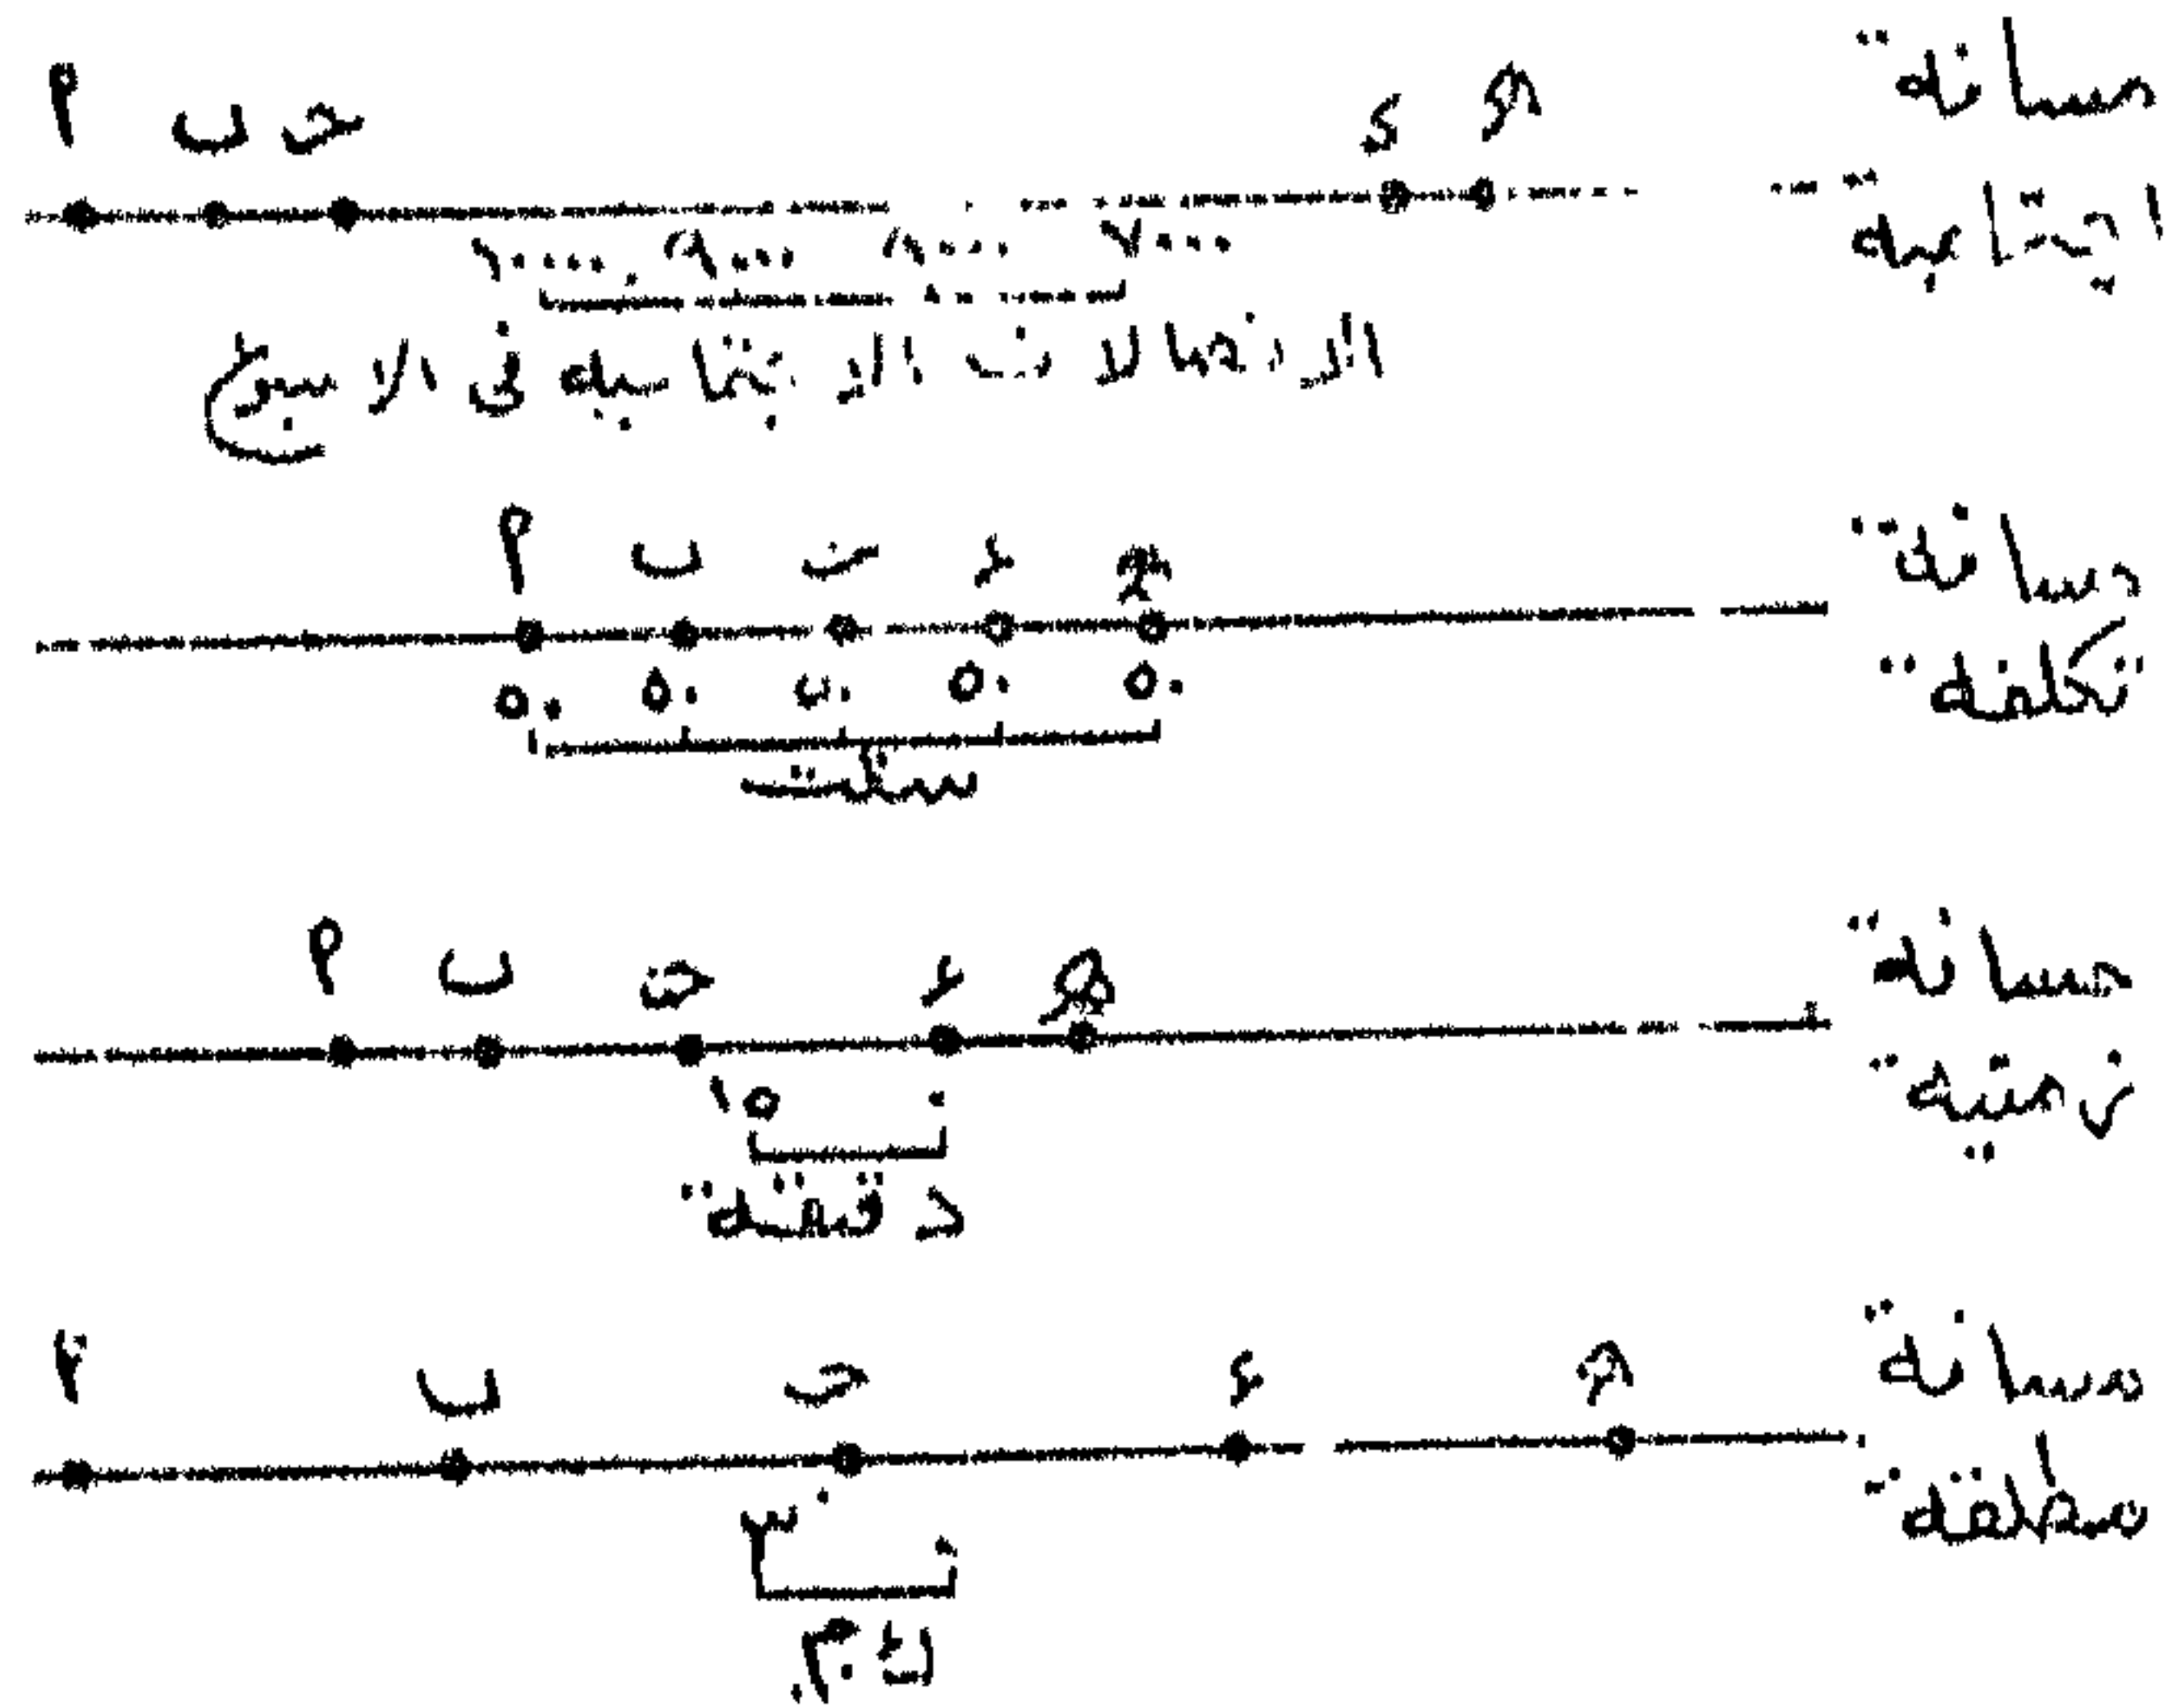 مسافة
اجتماعية
أ ب حـ د هـ
١٠٠٠٠ ٩٠٠٠ ٨٠٠٠ ٧٠٠٠
الاتصالات الاجتماعية في الاسبوع
مسافة
تكلفة
أ ب حـ د هـ
٥٠ ٥٠ ٥٠ ٥٠ ٥٠
سنت
مسافة
زمنية
أ ب حـ د هـ
١٥ ٠
دقيقة
مسافة
مطلقة
أ ب حـ د هـ
٣٠ ٠
كم